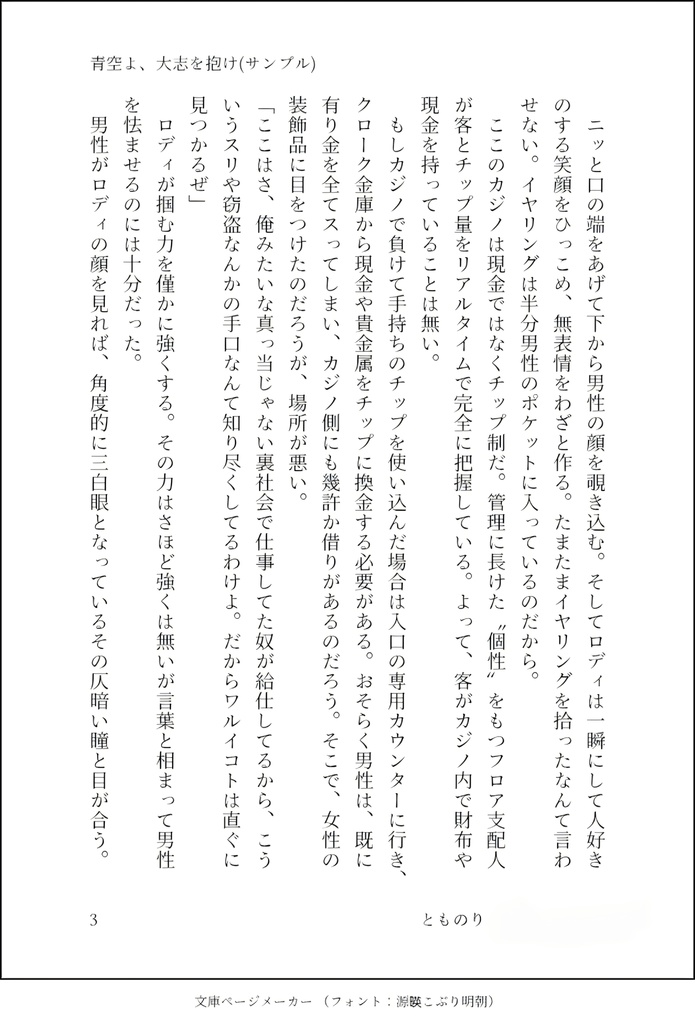 青空よ、大志を抱け(サンプル)
　ニッと口の端をあげて下から男性の顔を覗き込む。そしてロディは一瞬にして人好き
のする笑顔をひっこめ、無表情をわざと作る。たまたまイヤリングを拾ったなんて言わ
せない。イヤリングは半分男性のポケットに入っているのだから。
　ここのカジノは現金ではなくチップ制だ。管理に長けた〝個性〟をもつフロア支配人
が客とチップ量をリアルタイムで完全に把握している。よって、客がカジノ内で財布や
現金を持っていることは無い。
　もしカジノで負けて手持ちのチップを使い込んだ場合は入口の専用カウンターに行き、
クローク金庫から現金や貴金属をチップに換金する必要がある。おそらく男性は、既に
有り金を全てスってしまい、カジノ側にも幾許か借りがあるのだろう。そこで、女性の
装飾品に目をつけたのだろうが、場所が悪い。
「ここはさ、俺みたいな真っ当じゃない裏社会で仕事してた奴が給仕してるから、こう
いうスリや窃盗なんかの手口なんて知り尽くしてるわけよ。だからワルイコトは直ぐに
見つかるぜ」
　ロディが掴む力を僅かに強くする。その力はさほど強くは無いが言葉と相まって男性
を怯ませるのには十分だった。
　男性がロディの顔を見れば、角度的に三白眼となっているその仄暗い瞳と目が合う。
3
とものり
文庫ページメーカー（フォント：源暎こぶり明朝）